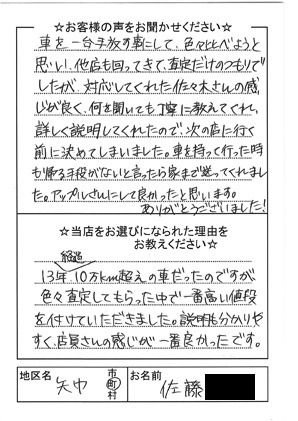 ☆お客様の声をお聞かせください☆
車を一台手放す事にして、色々比べようと
思い、他店も回ってきて、査定だけのつもりで
したが、対応してくれた佐々木さんの感
じが良く、何を聞いても丁寧に教えてくれ、
詳しく説明してくれたので、次の店に行く
前に決めてしまいました。車を持って行った時
も帰る手段がないと言ったら家まで送ってくれまし
た。アップルさんにして良かったと思います。
ありがとうございました!
☆当店をお選びになられた理由を
お教えください☆
経過
13年、10万km超えの車だったのですが
色々査定してもらった中で一番高い値段
を付けていただきました。説明も分かりや
すく、店員さんの感じが一番良かったです。
地区名 矢巾 市町村 お名前 佐藤